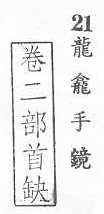 21 龍龕手鏡
卷二部首缺